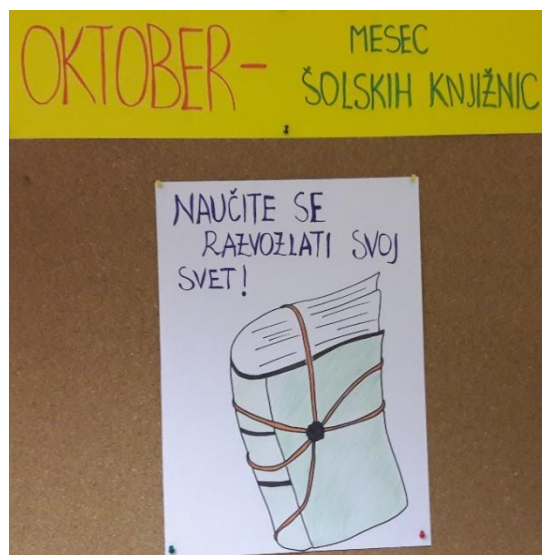 OKTOBER-
MESEC
ŠOLSKIH KNJIŽNIC
NAUČITE SE
RAZVOZLATI SVOJ
SVET!